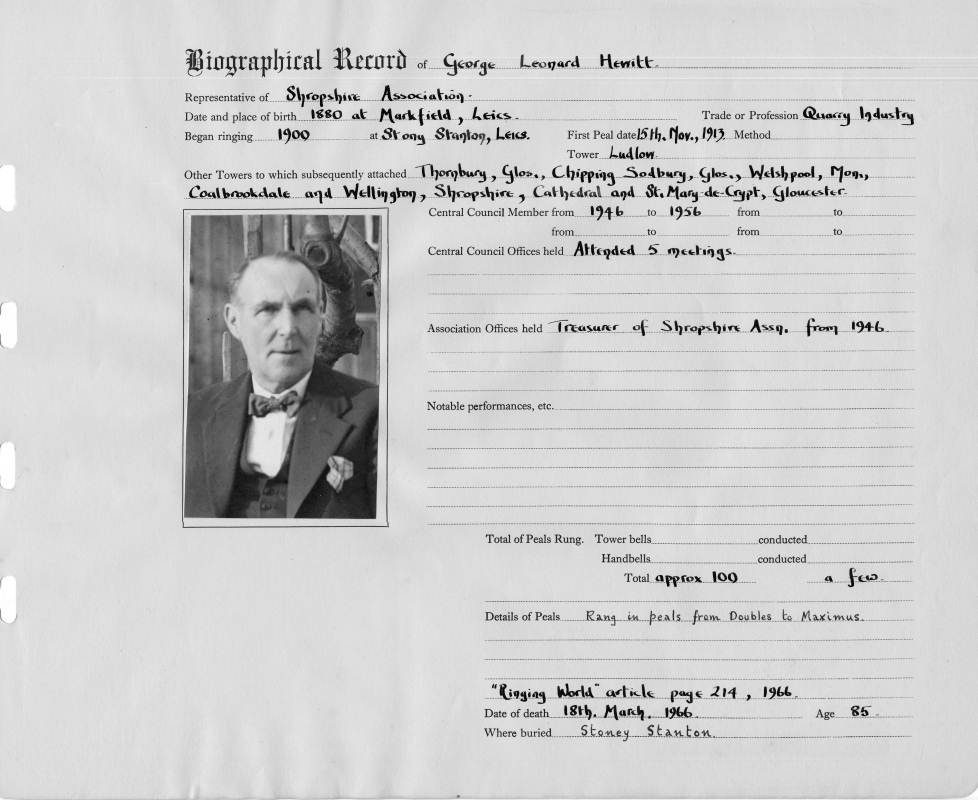 Biographical Record of George Leonard Hewitt.
Representative of Shropshire Association.
Date and place of birth 1880 at Markfield, Leics. Trade or Profession Quarry Industry
Began ringing 1900 at Stony Stanton, Leics. First Peal date 15th. Nov., 1913. Method
Tower Ludlow.
Other Towers to which subsequently attached Thornbury, Glos., Chipping Sodbury, Glos., Welshpool, Mon.,
Coalbrookdale and Wellington, Shropshire, Cathedral and St. Mary-de-Crypt, Gloucester.
Central Council Member from 1946 to 1956 from to
from to from to
Central Council Offices held Attended 5 meetings.
Association Offices held Treasurer of Shropshire Assn. from 1946.
Notable performances, etc.
Total of Peals Rung. Tower bells conducted
Handbells conducted
Total approx 100 a few.
Details of Peals Rang in peals from Doubles to Maximus.
"Ringing World" article page 214, 1966.
Date of death 18th. March. 1966. Age 85.
Where buried Stoney Stanton.